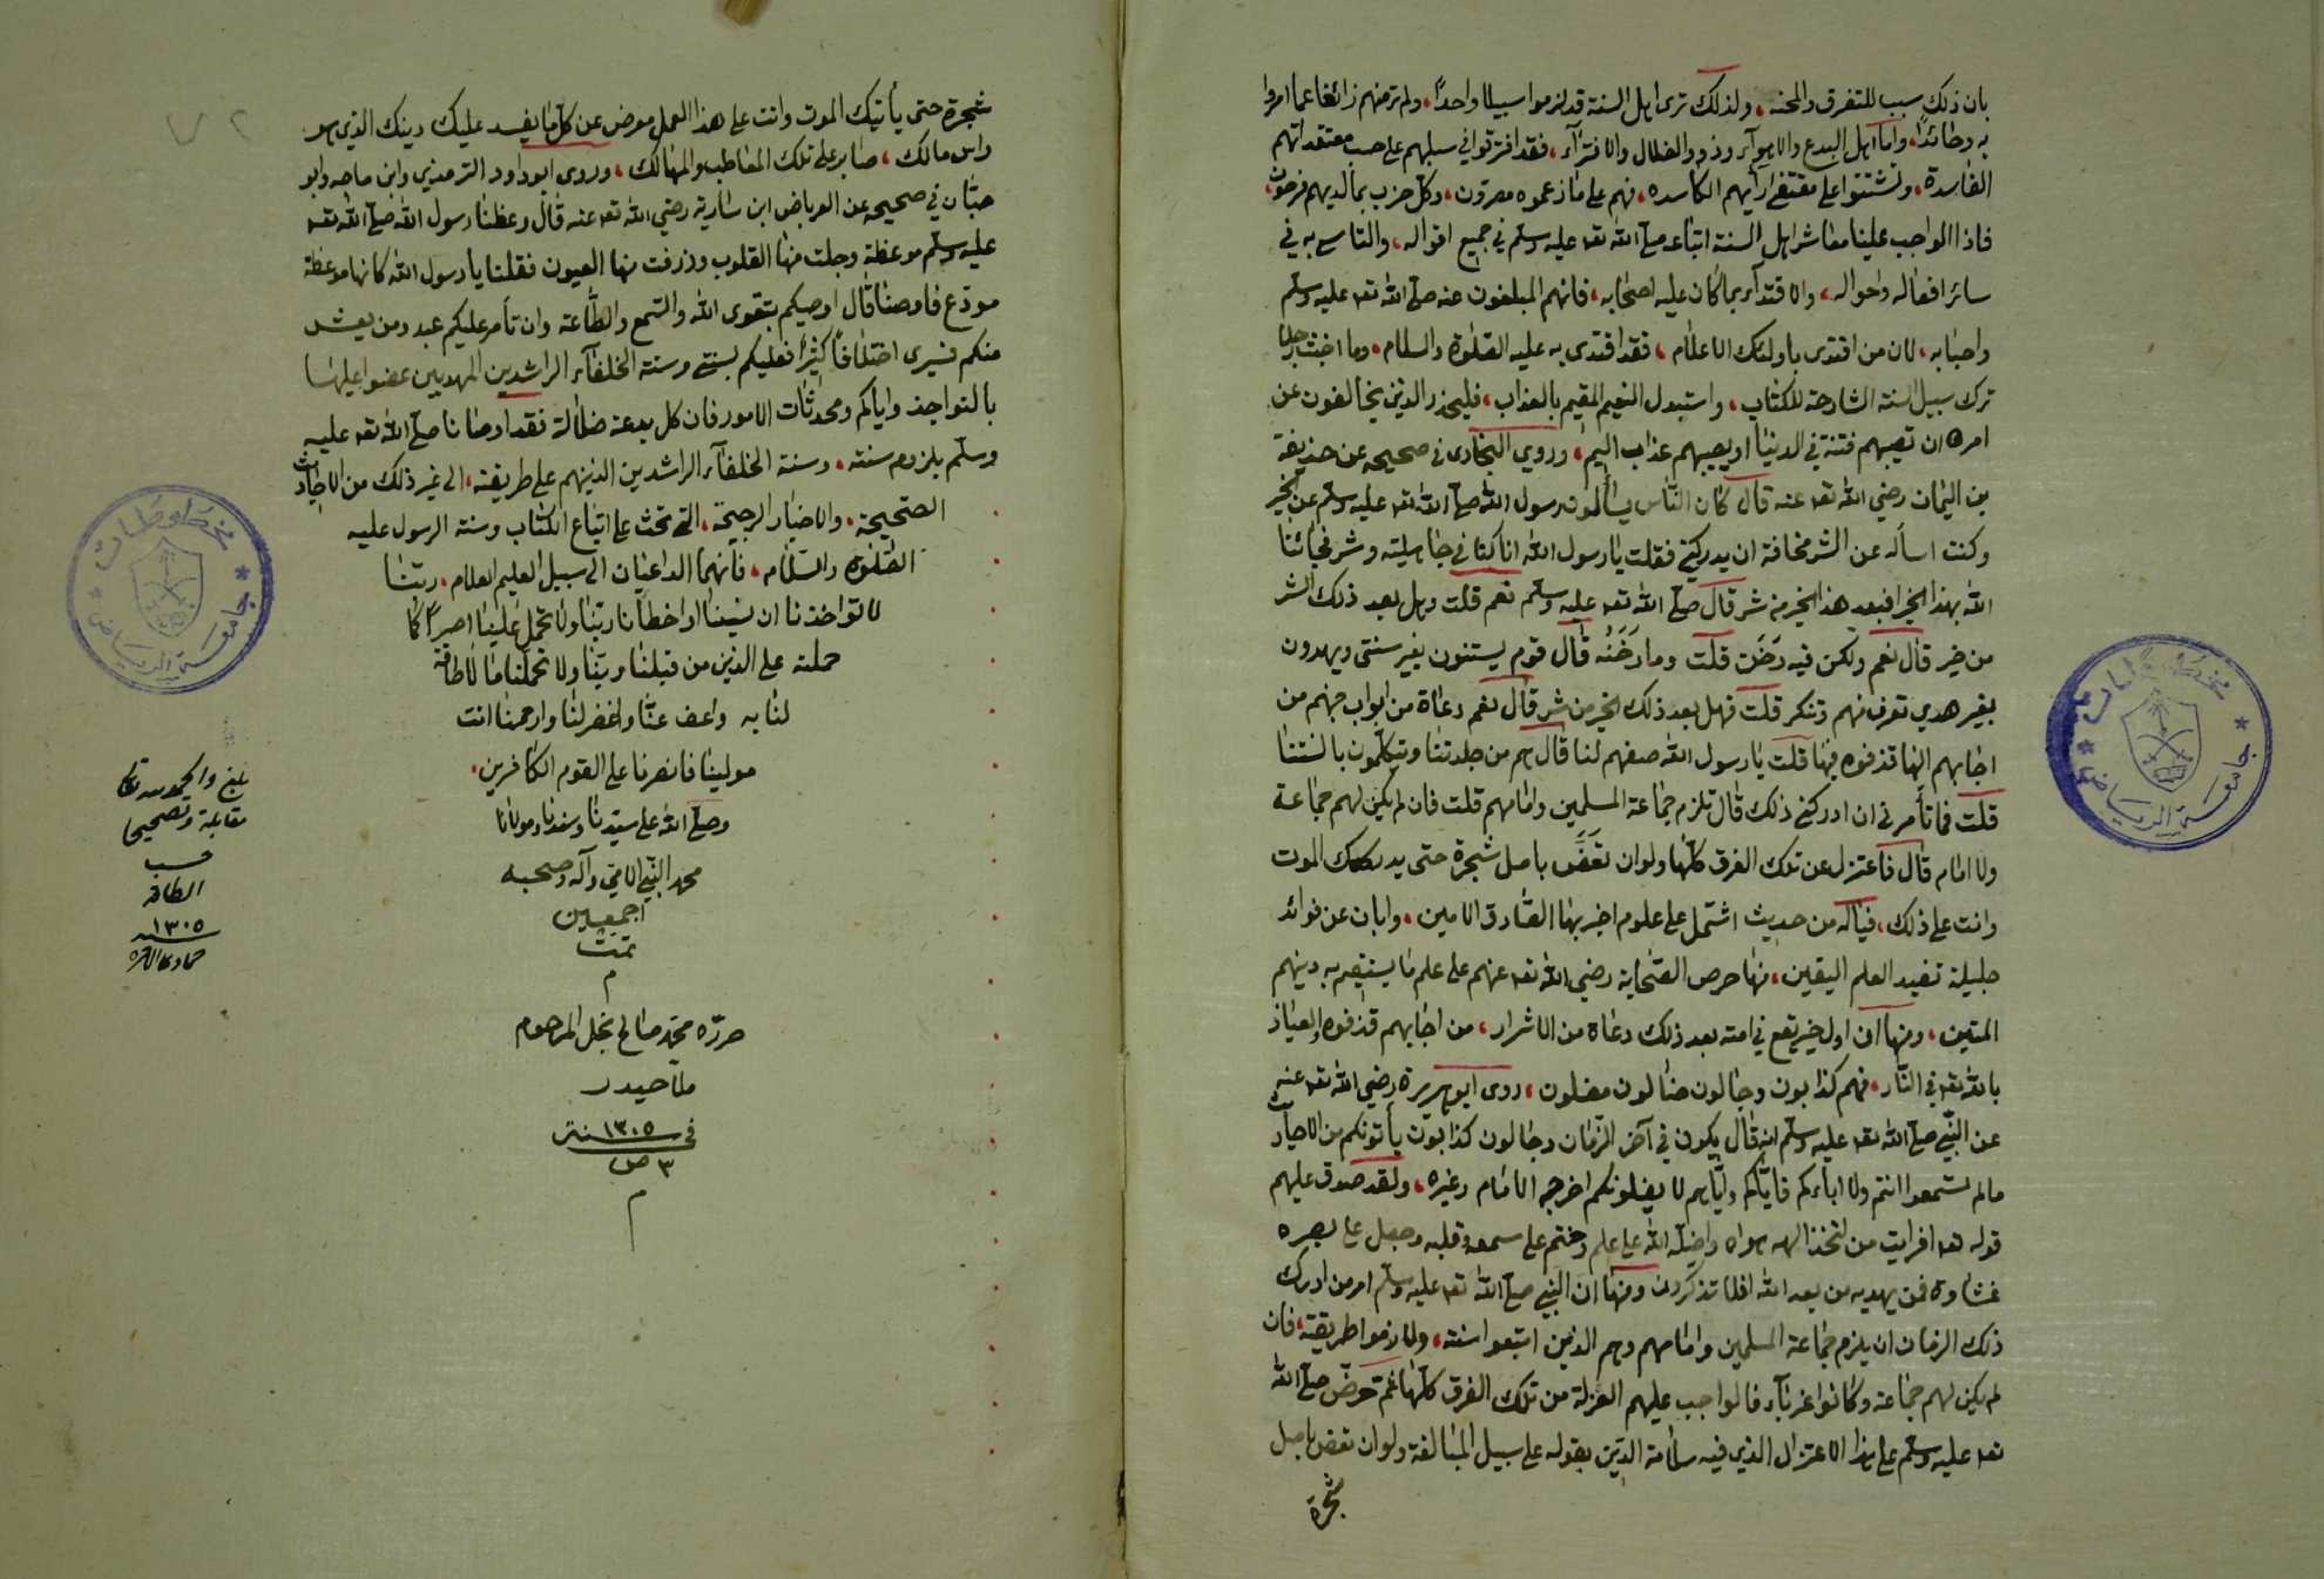 بان ذلك سبب للتفرق والمحنه، ولذلك ترى اهل السنة قد لزموا سبيلا واحدًا، ولم تر منهم زائغا عما امروا
به وحائدًا، واما اهل البدع والاهوآء وذوو الضلال والافترآء، فقد افترقوا في سبلهم على حسب معتقداتهم
الفاسدة، وتشتتوا على مقتضى ارأيهم الكاسده، فهم على ما زعموه مصرون، وكل حزب بما لديهم فرحون،
فاذا الواجب علينا معاشر اهل السنة اتباعه صلى الله تعا عليه وسلم في جميع اقواله، والتاسي به في
سائر افعاله واحواله، والاقتدآء بما كان عليه اصحابه، فانهم المبلغون عنه صلى الله تعا عليه وسلم
واحبابه، لان من اقتدى باولئك الاعلام، فقد اقتدى به عليه الصلوة والسلام، وما
ترك سبيل السنة الشارحة للكتاب، واستبدل النعيم المقيم بالعذاب، فليحذر الذين يخالفون عن
امره ان تصيبهم فتنة في الدنيا او يصيبهم عذاب اليم، وروي البخارى في صحيحه عن حذيفة
بن اليمان رضي الله تعا عنه قال كان الناس يسألون رسول الله صلى الله تعا عليه وسلم عن الخير
وكنت اسأله عن الشر مخافة ان يدركني فقلت يا رسول الله انا كنا في جاهلية وشر فجائنا
الله بهذا الخير افبعد هذا الخير من شر قال صلى الله تعا عليه وسلم نعم قلت وهل بعد ذلك الشر
من خير قال نعم ولكن فيه دَخَن قلت وما دَخَنُه قال قوم يستنون بغير سنتى ويهدون
بغير هدي تعرف منهم وتنكر قلت فهل بعد ذلك الخير من شر قال نعم دعاة من ابواب جهنم من
اجابهم اليها قذفوه فيها قلت يا رسول الله صفهم لنا قال هم من جلدتنا ويتكلمون بالسنتنا
قلت فما تأمرني ان ادركني ذلك قال تلزم جماعة المسلمين وامامهم قلت فان لم يكن لهم جماعة
ولا امام قال فاعتزل عن تلك الفرق كلها ولو ان تعَضَّ باصل شجرة حتى يدركك الموت
وانت على ذلك، فياله من حديث اشتمل على علوم اخبر بها الصادق الامين، وابان عن فوائد
جليلة تفيد العلم اليقين، منها حرص الصحابة رضي الله تعا عنهم على علم ما يستقيم به دينهم
المتين، ومنها ان اول خير يقع في امته بعد ذلك دعاة من الاشرار، من اجابهم قذفوه والعياذ
بالله تعا في النار، فهم كذابون دجالون ضالون مضلون، روى ابو هريرة رضي الله تعا عنه
عن النبي صلى الله تعا عليه وسلم انه قال يكون في آخر الزمان دجالون كذابون يأتونكم من الاحاديث
مالم تسمعوا انتم ولا اباءكم فاياكم واياهم لا يضلونكم اخرجه الامام وغيره، ولقد صدق عليهم
قوله تعا افرايت من اتخذ الهه هواه واضله الله على علم وختم على سمعه وقلبه وجعل على بصره
غشاوة فمن يهديه من بعد الله افلا تذكرون ومنها ان النبي صلى الله تعا عليه وسلم امر من ادرك
ذلك الزمان ان يلزم جماعة المسلمين وامامهم وهم الذين اتبعوا سنته، ولازموا طريقته، فان
لم يكن لهم جماعة وكانوا غربآء فالواجب عليهم العزلة من تلك الفرق كلها ثم حرض صلى الله
تعا عليه وسلم على هذا الاعتزال الذي فيه سلامة الدين بقوله على سبيل المبالغة ولو ان تعض باصل
شجرة
شجرة حتى يأتيك الموت وانت على هذا العمل معرض عن كل ما يفسد عليك دينك الذي هو
راس مالك، صابر على تلك المعاطب والمهالك، وروى ابو داود الترمذي وابن ماجه وابو
حبان في صحيحه عن العرباض ابن سارية رضي الله تعا عنه قال وعظنا رسول الله صلى الله تعا
عليه وسلم موعظة وجلت منها القلوب وذرفت منها العيون فقلنا يا رسول الله كانها موعظة
مودع فاوصنا قال اوصيكم بتقوى الله والسمع والطاعة وان تأمر عليكم عبد ومن يعش
منكم فسيرى اختلافًا كثيرًا فعليكم بسنتي وسنة الخلفآء الراشدين المهديين عضوا عليها
بالنواجذ واياكم ومحدثات الامور فان كل بدعة ضلالة فقد اوصانا صلى الله تعا عليه
وسلم بلزوم سنته، وسنة الخلفآء الراشدين الذينهم على طريقته، الى غير ذلك من الاحاديث
الصحيحة، والاخبار الرجيحة، التي تحث على اتباع الكتاب وسنة الرسول عليه
الصلوة والسلام، فانهما الداعيان الى سبيل العليم العلام، ربنا
لا تواخذنا ان نسينا او اخطأنا ربنا ولا تحمل علينا اصرًا كما
حملته على الذين من قبلنا ربنا ولا تحملنا ما لا طاقة
لنا به واعف عنا واغفر لنا وارحمنا انت
مولينا فانصرنا على القوم الكافرين،
وصلى الله على سيدنا وسندنا ومولانا
محمد النبي الامي وآله وصحبه
اجمعين
تمت
م
حرره محمد صالح نجل المرحوم
ملا حيدر
في ١٣٠٥ سنة
٣ ص
م
بلغ والحمد لله تعا
مقابلة وتصحيحا
حسب
الطاقه
١٣٠٥
جمادى الاخره
مخطوطات
جامعة الرياض
جامعة الرياض